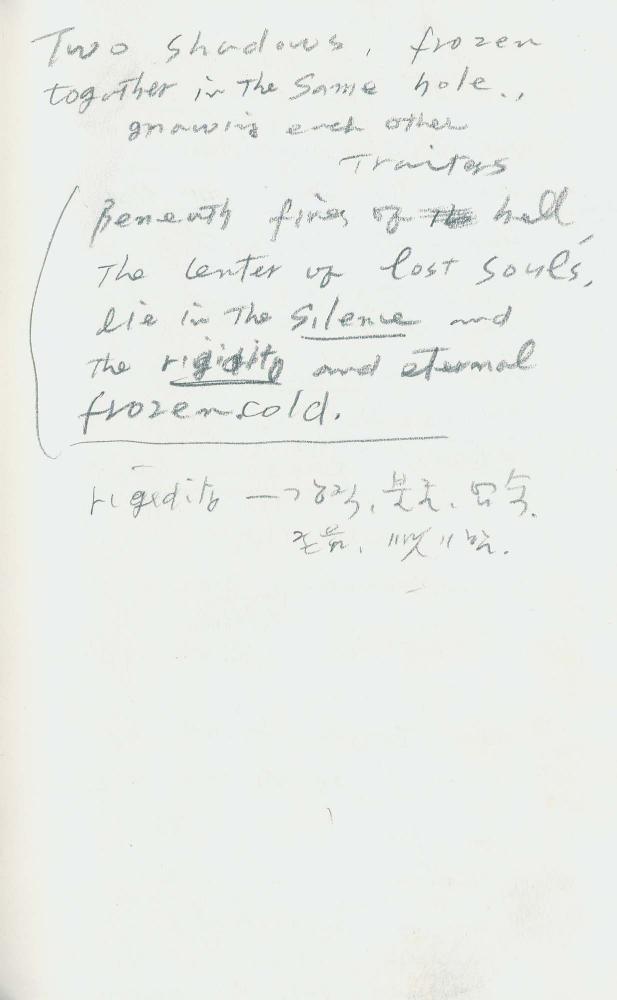 Two shadows, frozen
together in The Same hole.,
gnawing each other
Traitors
Beneath fires of hell
The center of lost souls,
Lie in The Silence and
the rigidity and eternal
frozen cold.
rigidity → 강직, 불굴, 엄숙.